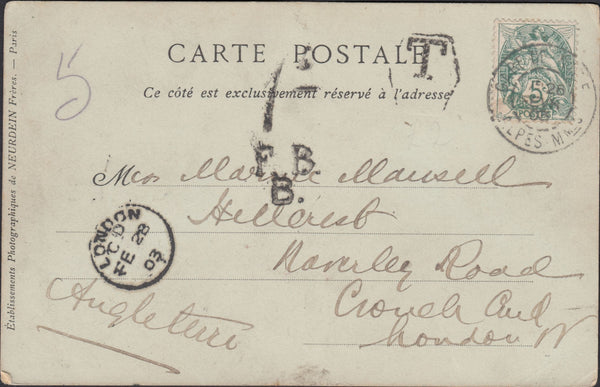 CARTE POSTALE
Ce côté est exclusivement réservé à l'adresse
Établissements Photographiques de NEURDEIN Frères. — Paris
5
T
F.B
B.
Miss Mansell
Hillcrest
Waverley Road
Crouch End
London N
Angleterre
LONDON
FE 28
03
5
ALPES MMES